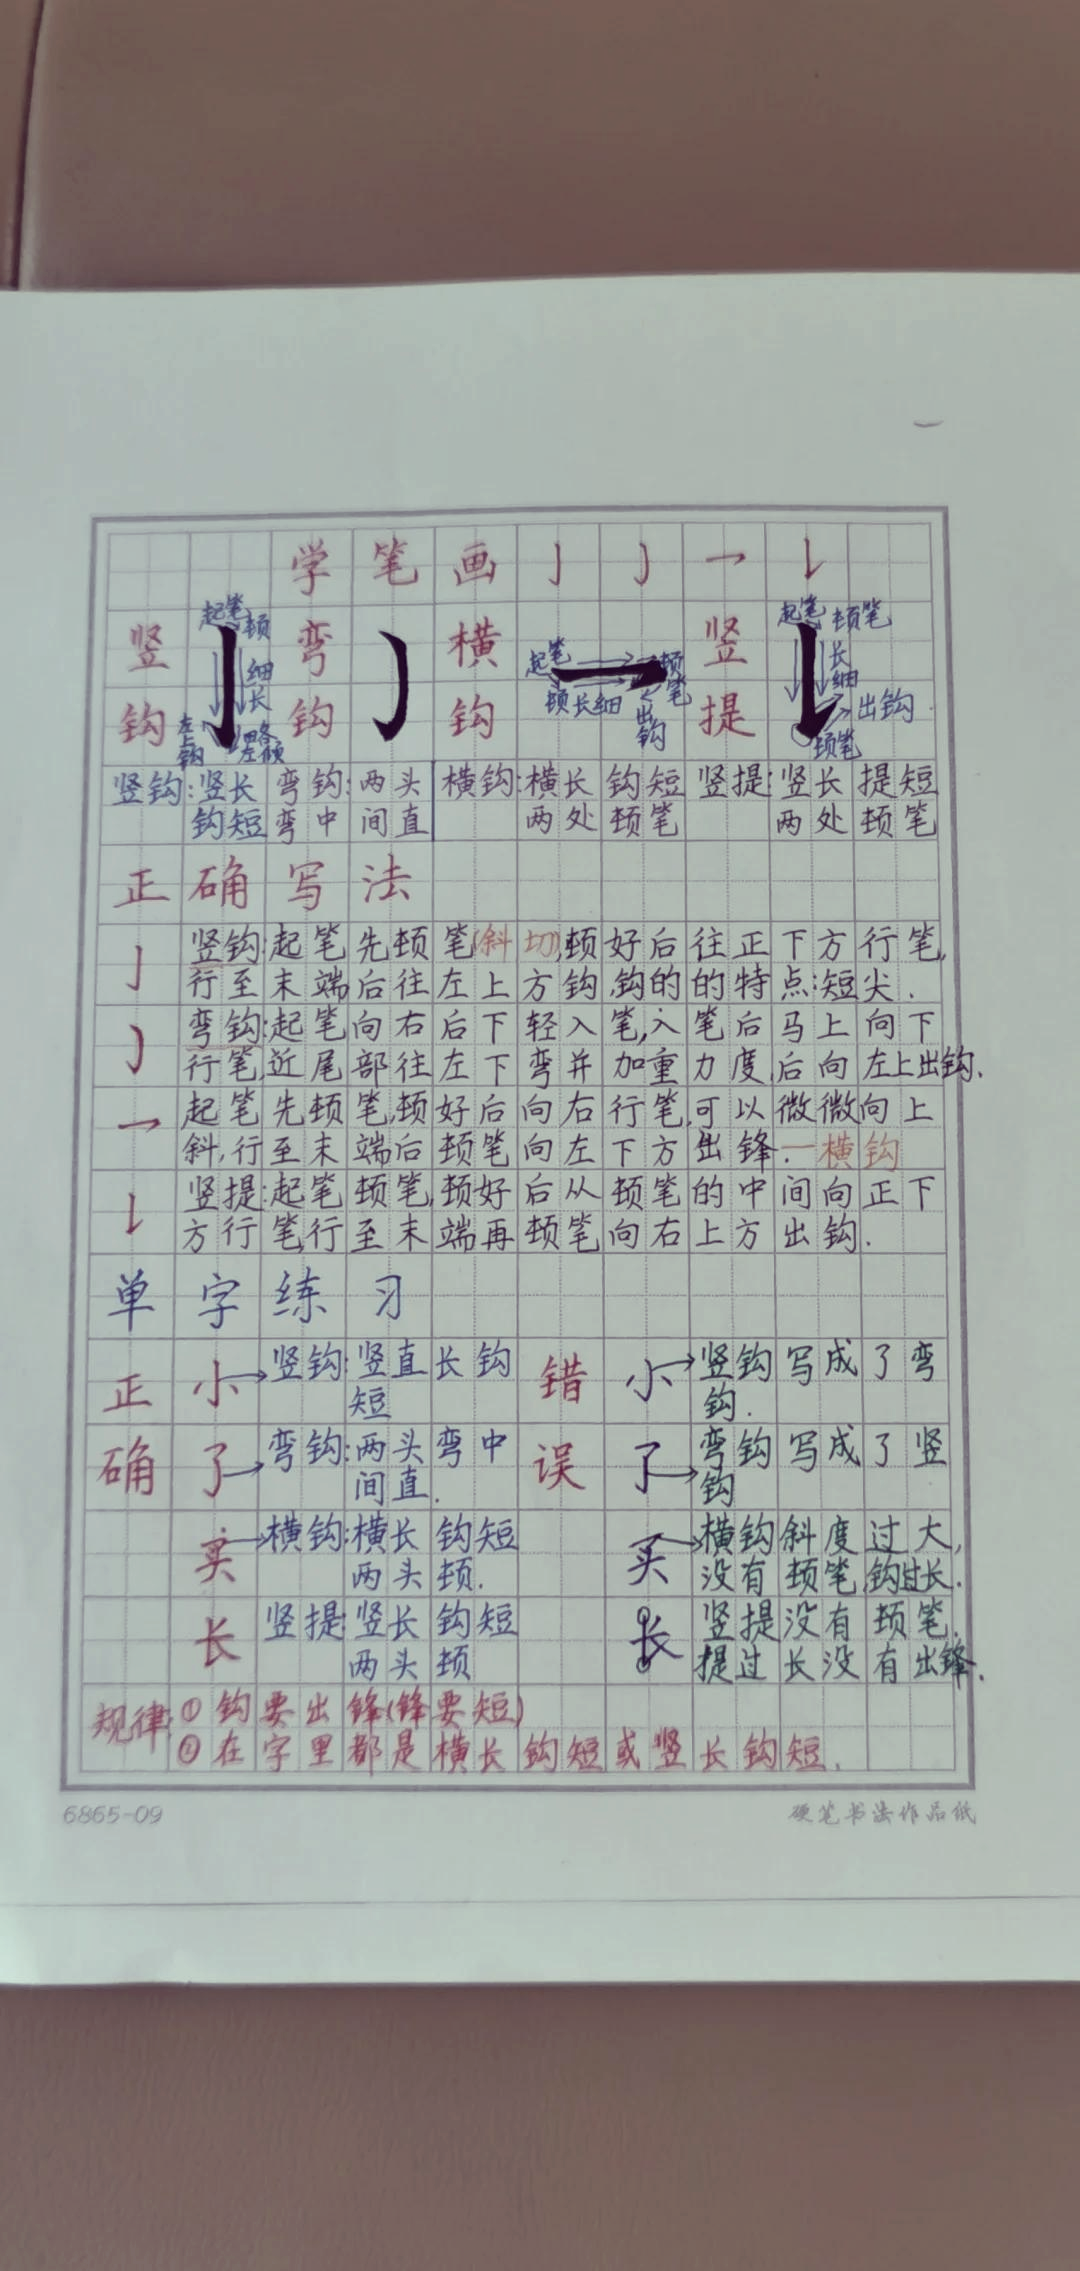 学笔画亅㇁乛𠄌
竖钩 弯钩 横钩 竖提
起笔 顿 细长 左上钩
起笔 顿长细 顿笔 出钩
起笔 顿笔 长细 出钩 顿笔
竖钩:竖长 弯钩:两头 横钩:横长 钩短 竖提:竖长 提短
钩短 弯中间直 两处顿笔 两处顿笔
正确写法
亅 竖钩:起笔先顿笔(斜切),顿好后往正下方行笔,
行至末端后往左上方钩,钩的的特点:短尖.
㇁ 弯钩:起笔向右后下轻入笔,入笔后马上向下
行笔,近尾部往左下弯并加重力度,后向左上出钩.
乛 起笔先顿笔,顿好后向右行笔,可以微微向上
斜,行至末端后顿笔向左下方出锋.一横钩
𠄌 竖提:起笔顿笔,顿好后从顿笔的中间向正下
方行笔,行至末端再顿笔向右上方出钩.
单字练习
正确 错误
小→竖钩:竖直长钩短 小→竖钩写成了弯钩.
了→弯钩:两头弯中间直. 了→弯钩写成了竖钩
买→横钩:横长钩短两头顿. 买→横钩斜度过大,没有顿笔,钩过长.
长 竖提:竖长钩短两头顿 长 竖提没有顿笔.提过长没有出锋.
规律:①钩要出锋(锋要短)
②在字里都是横长钩短或竖长钩短.
6865-09 硬笔书法作品纸